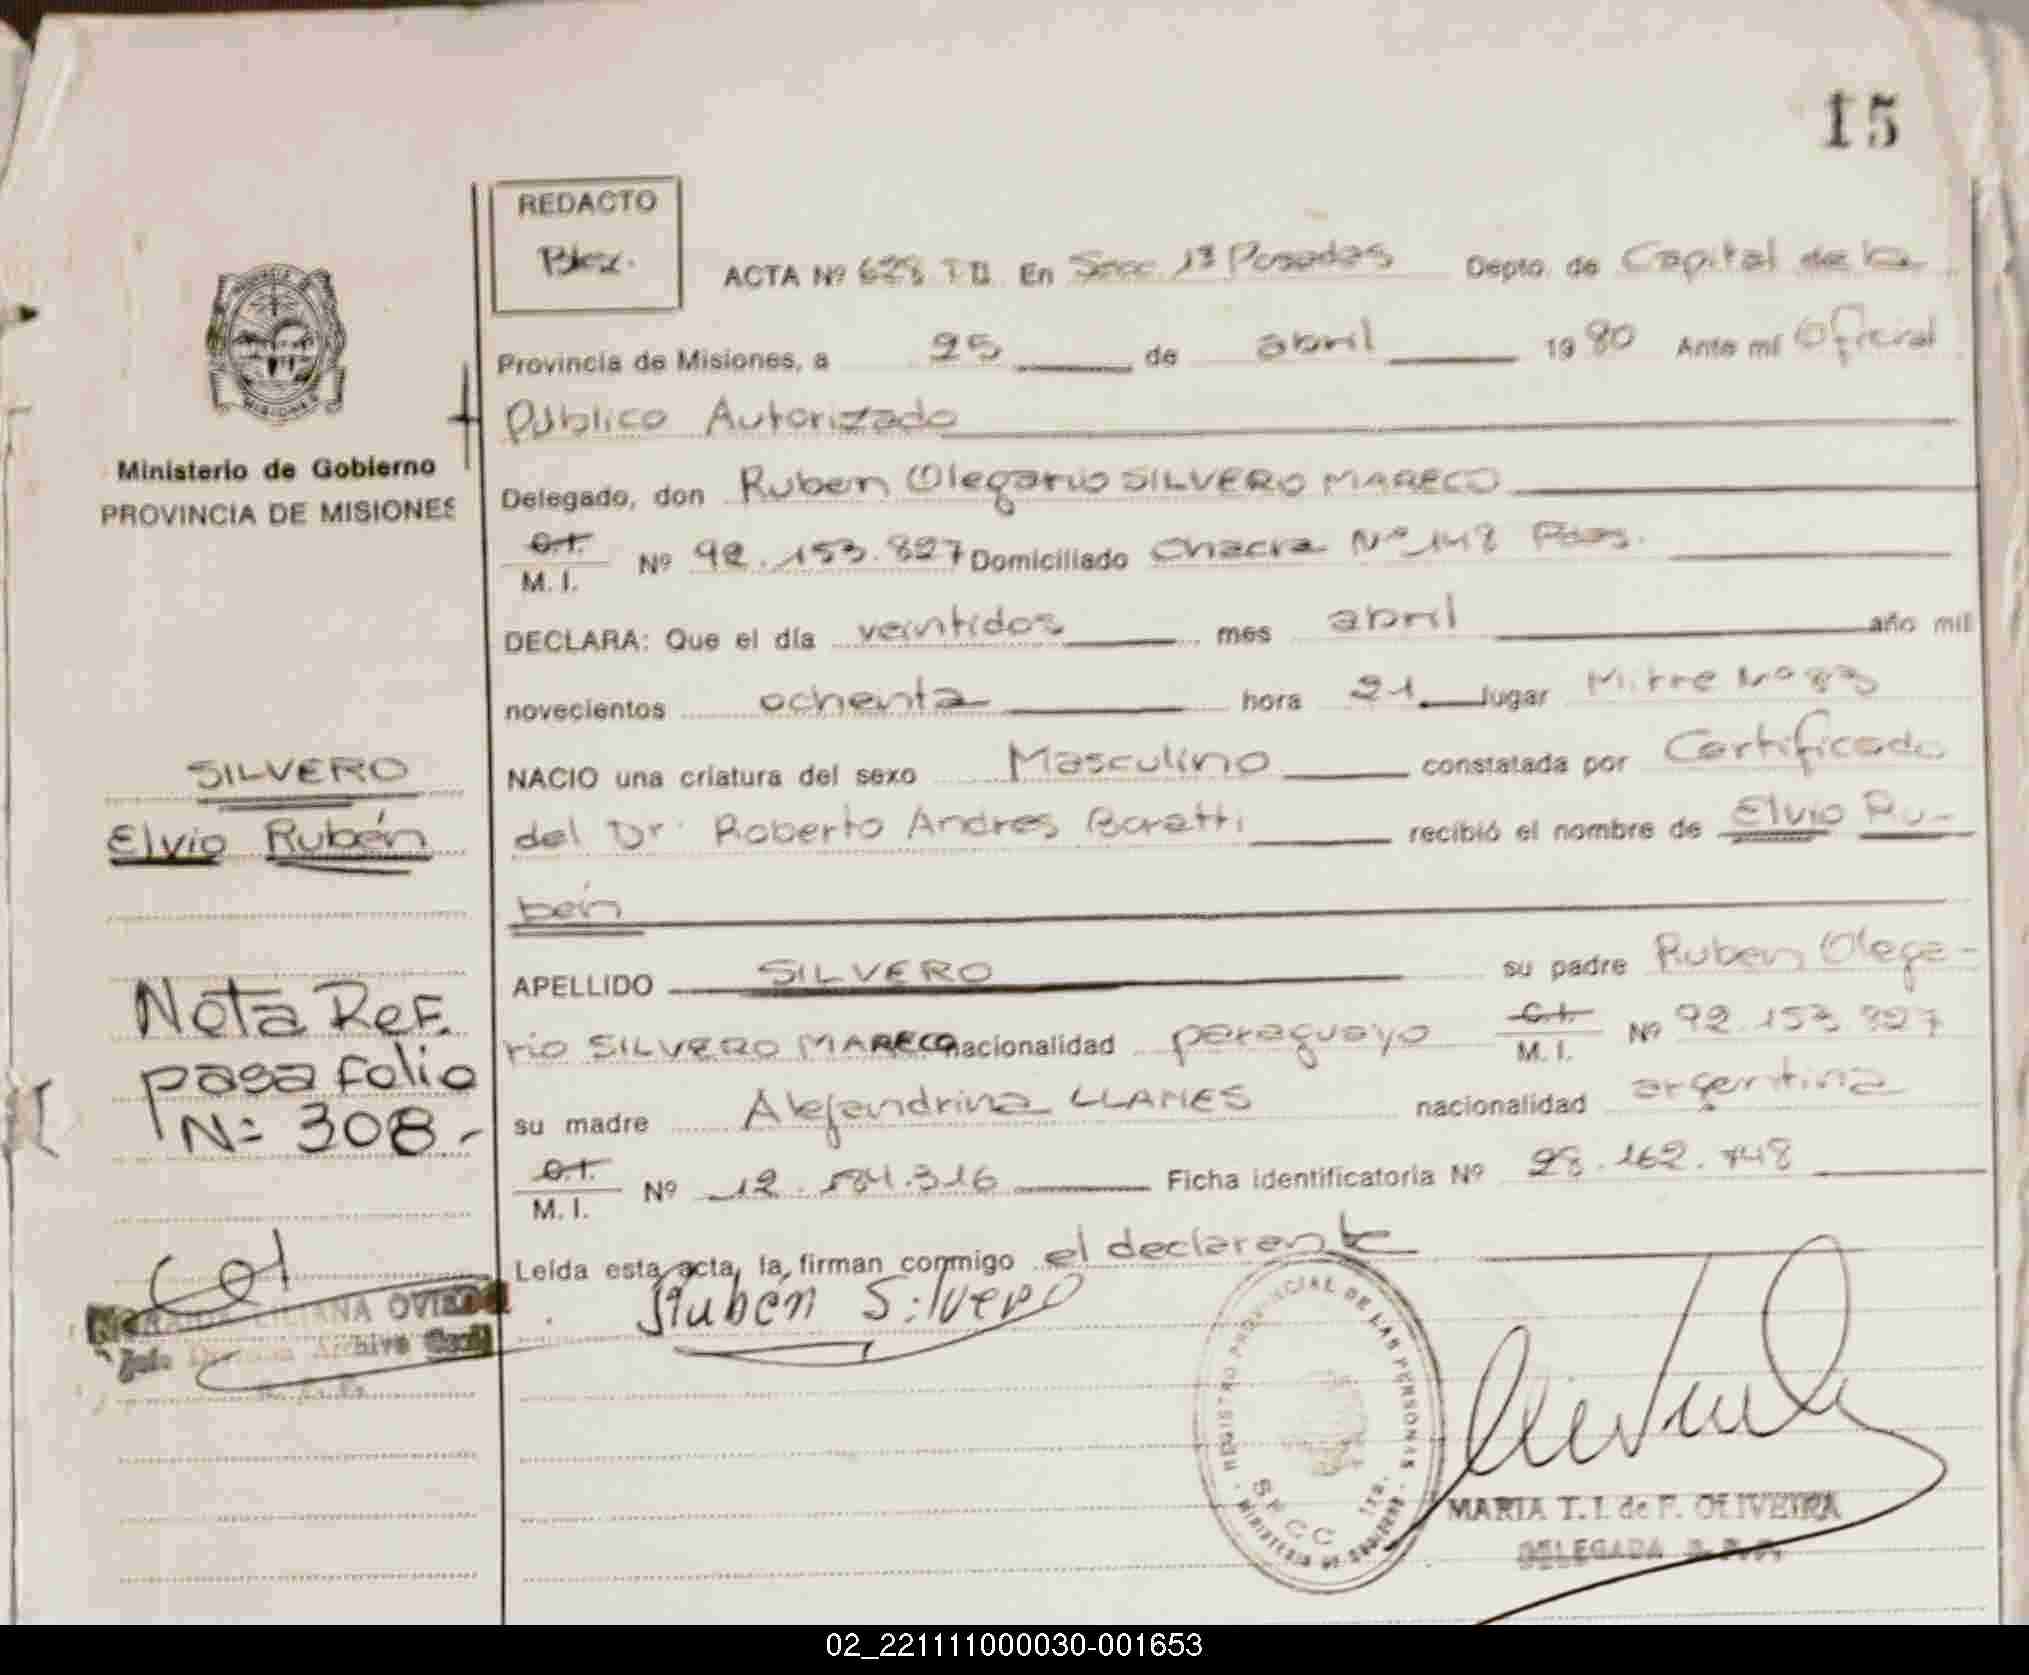 15
REDACTO
ACTA Nº 628 TII En Secc. 1ª Posadas Depto. de Capital de la
Provincia de Misiones, a 25 de abril 1980 Ante mí Oficial
Público Autorizado
Ministerio de Gobierno
PROVINCIA DE MISIONES
Delegado, don Ruben Olegario SILVERO MARECO
C.I.
M. I. Nº 92.153.827 Domiciliado Chacra Nº 148 Pdas.
DECLARA: Que el día veintidos mes abril año mil
novecientos ochenta hora 21 lugar Mitre Nº 83
SILVERO
Elvio Rubén
NACIO una criatura del sexo Masculino constatada por Certificado
del Dr. Roberto Andres Boratti recibió el nombre de Elvio Ru-
bén
APELLIDO SILVERO su padre Ruben Olega-
rio SILVERO MARECO nacionalidad paraguayo C.I. M. I. Nº 92.153.827
Nota Ref.
pasa folio
Nº 308.-
su madre Alejandrina LLAMES nacionalidad argentina
C.I.
M. I. Nº 12. 184.316 Ficha identificatoria Nº 28.162.748
Leída esta acta, la firman conmigo el declarante
Rubén Silvero
LILIANA OVIEDO
Jefe Division Archivo Gral
REGISTRO PROVINCIAL DE LAS PERSONAS
SECC 1ra.
MINISTERIO DE GOBIERNO
MARIA T. I. de F. OLIVEIRA
DELEGADA R. P. P.
02_221111000030-001653